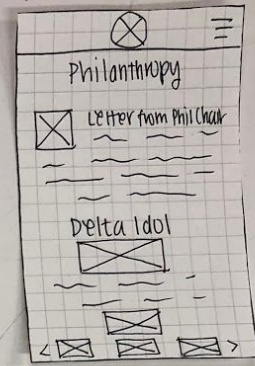 Philanthropy
Letter from Phil Chair
Delta Idol
< >